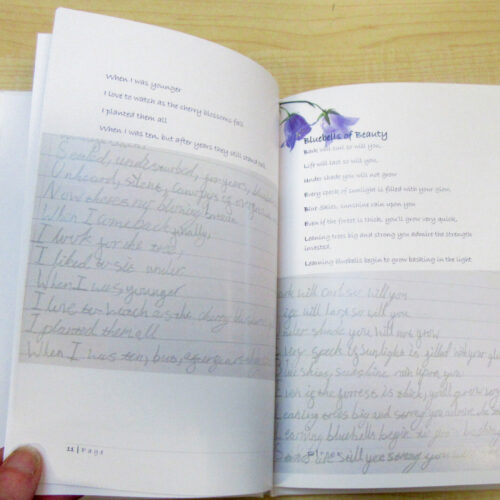 When I was younger
I love to watch as the cherry blossoms fall
I planted them all
When I was ten, but after years they still stand tall
Sealed, undisturbed, for years,
Unheard, silent,
Now there's not
When I come back finally,
I look for the tree,
I liked to sit under
When I was younger
I love to watch as the cherry
I planted them all
When I was ten, but after years
11 | Page
Bluebells of Beauty
Bark will curl so will you,
Life will last so will you,
Under shade you will not grow
Every speck of sunlight is filled with your glow,
Blue skies, sunshine rain upon you
Even if the forest is thick, you'll grow very quick,
Leaning trees big and strong you admire the strength
invested.
Learning bluebells begin to grow basking in the light
ark will curl so will you
ife will last so will you
nder shade you will not grow
very speck of sunlight is filled with your
lue skies, sunshine rain upon you
ven if the forrest is thick, you'll grow
eaning trees big and strong you admire the
earning bluebells begin to grow